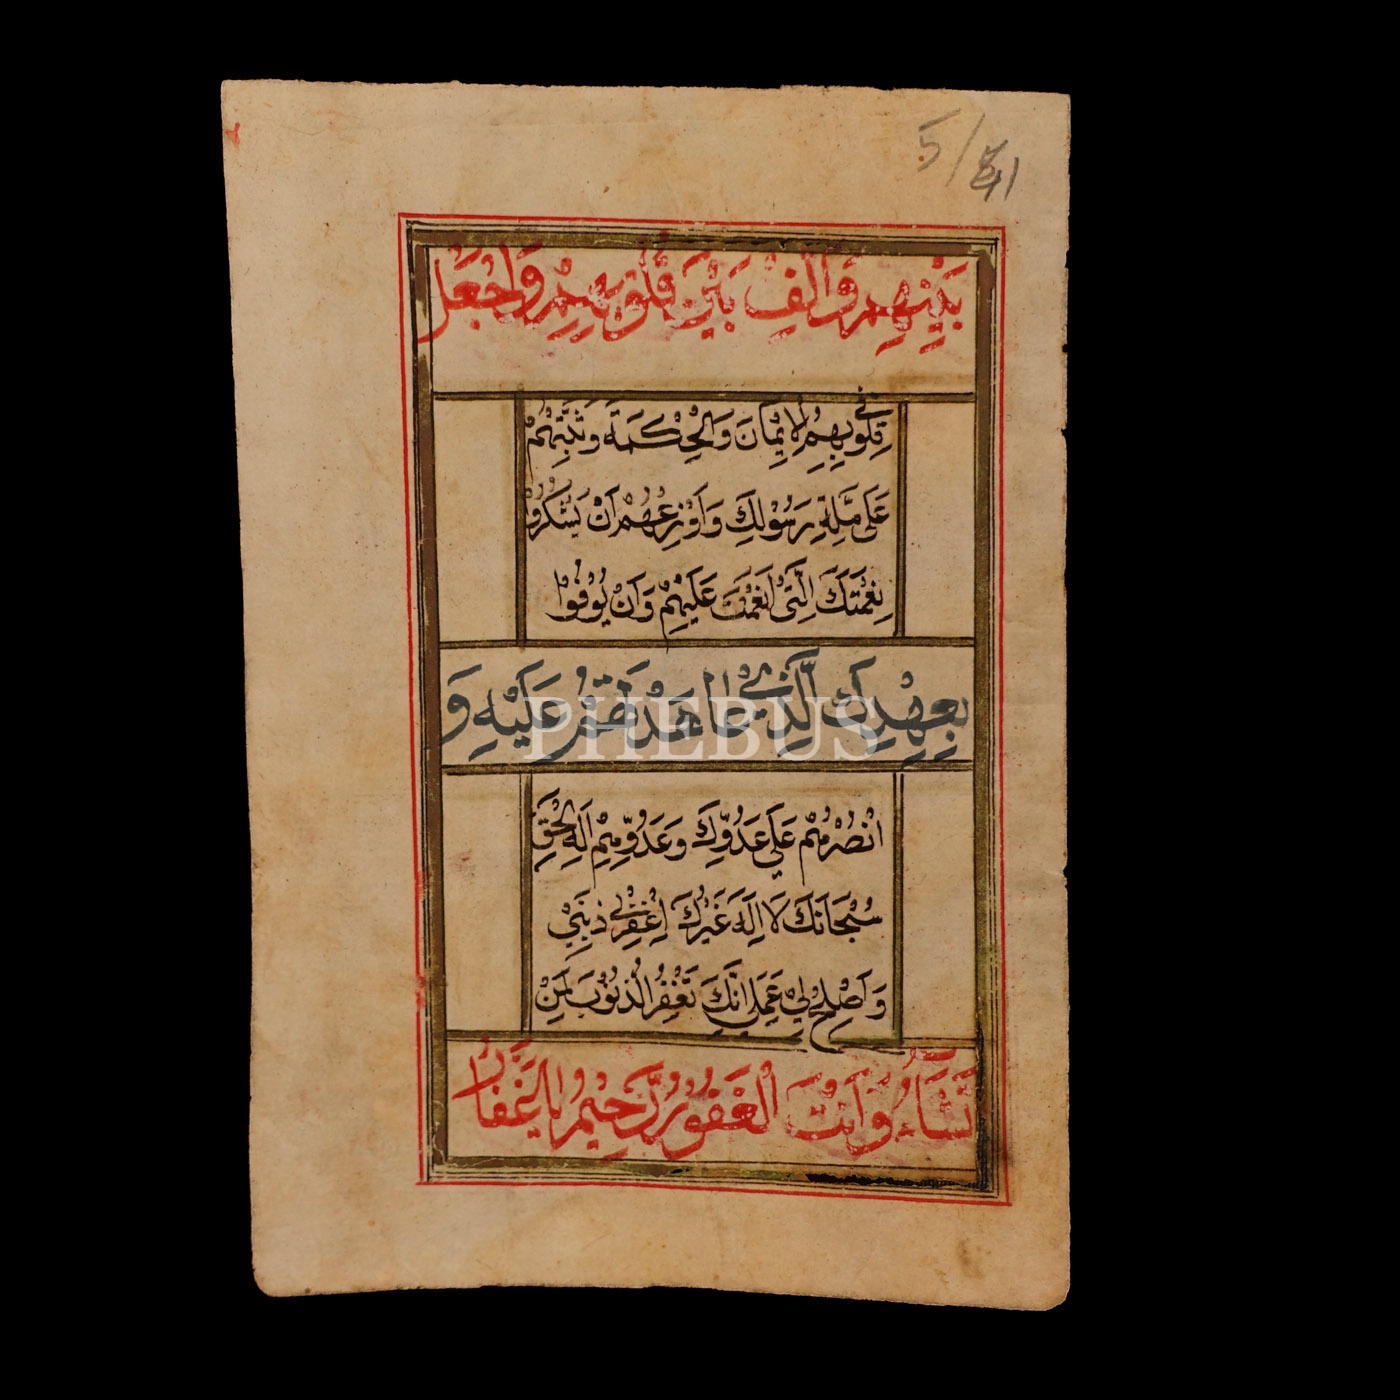 5/41
بَيْنِهِمْ وَاَلِّفْ بَيْنَ قُلُوبِهِمْ وَاجْعَلْ
فِي قُلُوبِهِمُ لْاِيْمَانَ وَالْحِكْمَةَ وَثَبِّتْهُمْ
عَلَى مِلَّةِ رَسُوْلِكَ وَاَوْزِعْهُمْ اَنْ يَشْكُرُوْا
نِعْمَتَكَ الَّتِيْ اَنْعَمْتَ عَلَيْهِمْ وَاَنْ يُوْفُوْا
بِعَهْدِكَ لَّذِيْ عَاهَدْتَهُمْ عَلَيْهِ وَ
PHEBUS
انْصُرْهُمْ عَلَى عَدُوِّكَ وَعَدُوِّهِمْ اِلَهَ الْحَقِّ
سُبْحَانَكَ لَا اِلَهَ غَيْرُكَ اِغْفِرْلِيْ ذَنْبِيْ
وَاَصْلِحْ لِيْ عَمَلِيْ اِنَّكَ تَغْفِرُ الذُّنُوْبَ لِمَنْ
تَشَاءُ وَاَنْتَ الْغَفُوْرُ رَّحِيْمُ يَا غَفَّارُ